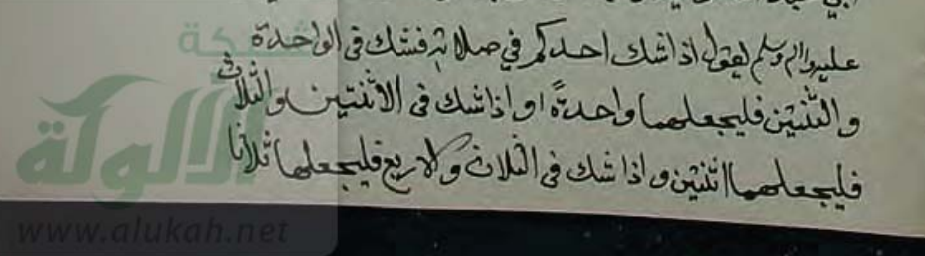 عليه والم وسلم يقول اذا شك احدكم في صلاته فشك في الواحدة
والثنتين فليجعلهما واحدةً او اذا شك في الاثنتين والثلاث
فليجعلهما اثنتين واذا شك في الثلاث والاربع فليجعلها ثلاثا
شبكة
الألوكة
www.alukah.net